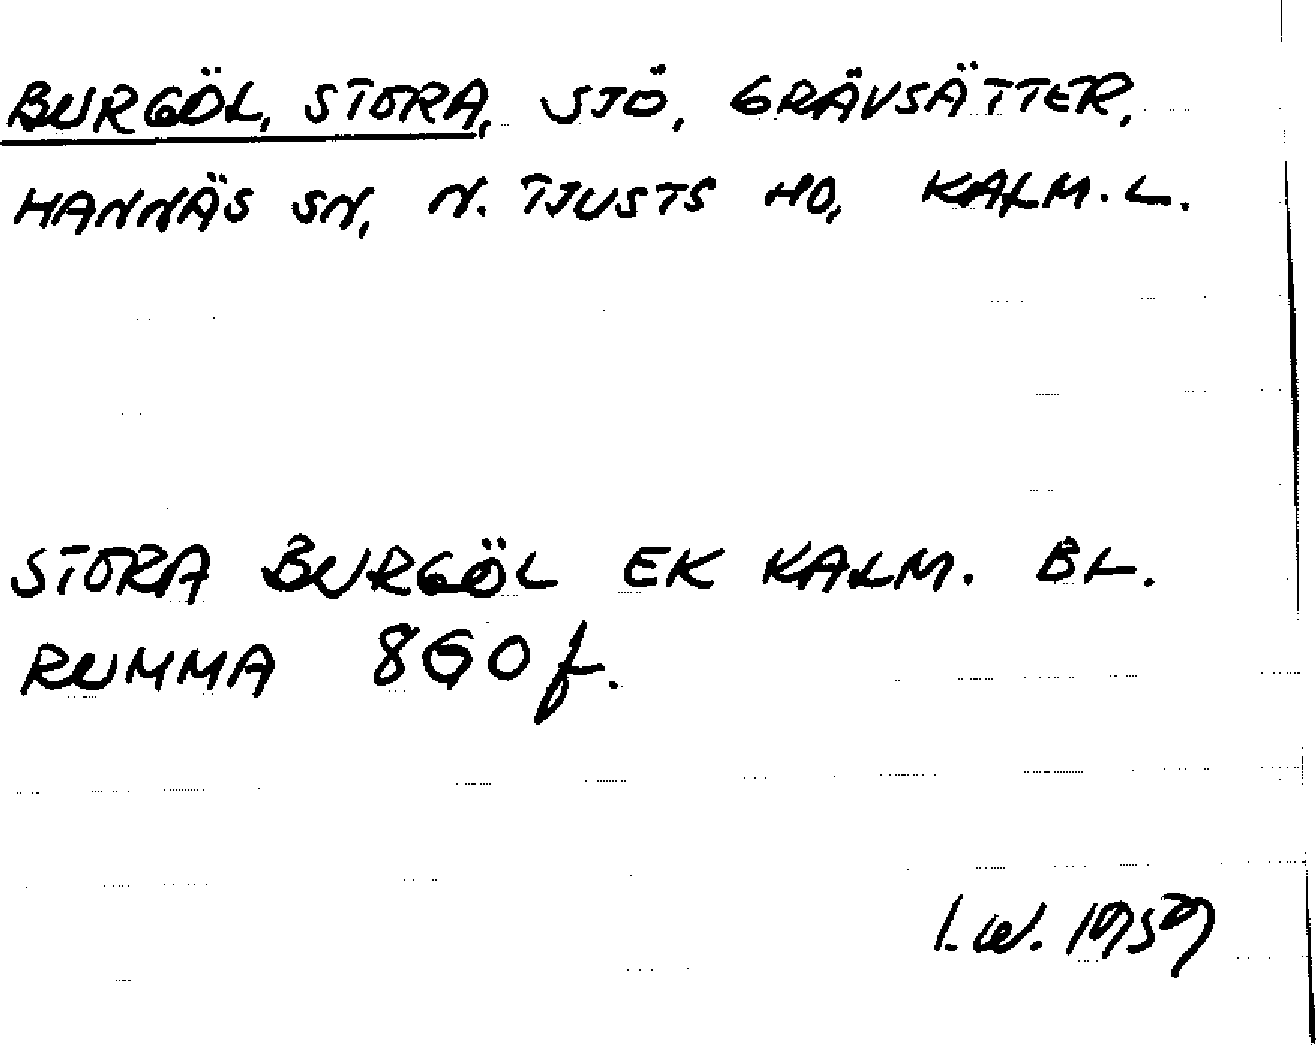 BURGÖL, STORA, SJÖ, GRÄVSÄTTER,
HANNÄS SN, N. TJUSTS HD, KALM. L.
STORA BURGÖL EK KALM. BL.
RUMMA 860 f.
I.W. 1959